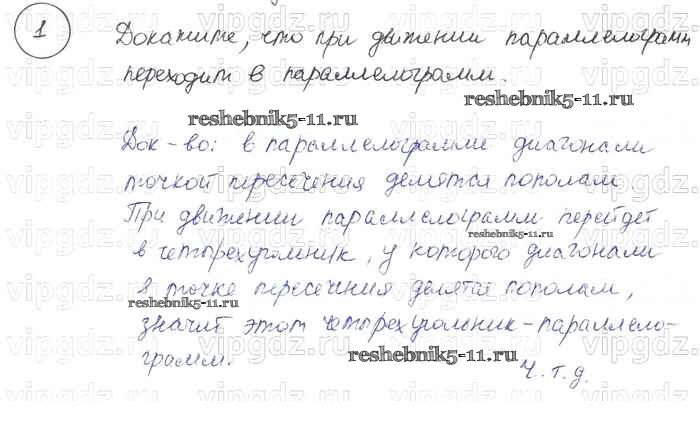 1 Докажите, что при движении параллелограмм
переходит в параллелограмм.
reshebnik5-11.ru
reshebnik5-11.ru
Док-во: в параллелограмме диагонали
точкой пересечения делятся пополам
При движении параллелограмм перейдет
reshebnik5-11.ru
в четырехугольник, у которого диагонали
в точке пересечения делятся пополам,
reshebnik5-11.ru
значит этот четырехугольник-параллело-
грамм.
reshebnik5-11.ru
ч.т.д.